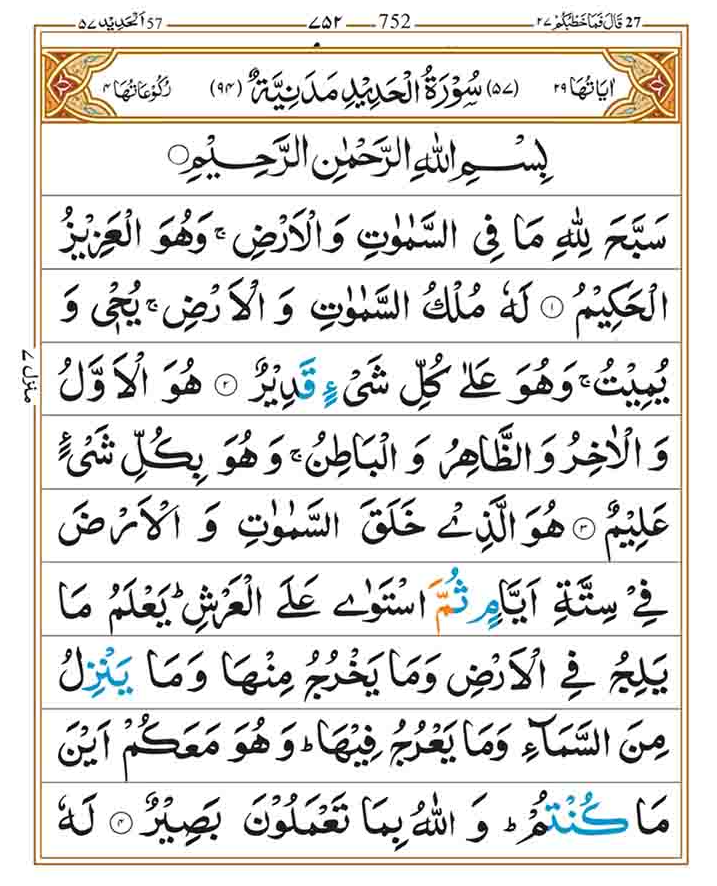 27 قَالَ فَمَا خَطْبُكُمْ ٢٧ 752 ٧٥٢ 57 اَلْحَدِيْد ٥٧
اٰيَاتُهَا ٢٩ (٥٧) سُوْرَةُ الْحَدِيْدِ مَدَنِيَّةٌ (٩٤) رُكُوْعَاتُهَا ٤
بِسْمِ اللّٰهِ الرَّحْمٰنِ الرَّحِيْمِ ○
سَبَّحَ لِلّٰهِ مَا فِى السَّمٰوٰتِ وَالْاَرْضِ ۚ وَهُوَ الْعَزِيْزُ
الْحَكِيْمُ ۝١ لَهٗ مُلْكُ السَّمٰوٰتِ وَ الْاَرْضِ ۚ يُحْيٖ وَ
يُمِيْتُ ۚ وَهُوَ عَلٰى كُلِّ شَىْءٍ قَدِيْرٌ ۝٢ هُوَ الْاَوَّلُ
وَ الْاٰخِرُ وَ الظَّاهِرُ وَ الْبَاطِنُ ۚ وَ هُوَ بِكُلِّ شَىْءٍ
عَلِيْمٌ ۝٣ هُوَ الَّذِيْ خَلَقَ السَّمٰوٰتِ وَ الْاَرْضَ
فِيْ سِتَّةِ اَيَّامٍ ثُمَّ اسْتَوٰى عَلَى الْعَرْشِ ؕ يَعْلَمُ مَا
يَلِجُ فِى الْاَرْضِ وَمَا يَخْرُجُ مِنْهَا وَمَا يَنْزِلُ
مِنَ السَّمَآءِ وَمَا يَعْرُجُ فِيْهَا ؕ وَ هُوَ مَعَكُمْ اَيْنَ
مَا كُنْتُمْ ؕ وَ اللّٰهُ بِمَا تَعْمَلُوْنَ بَصِيْرٌ ۝٤ لَهٗ
منزل ٧